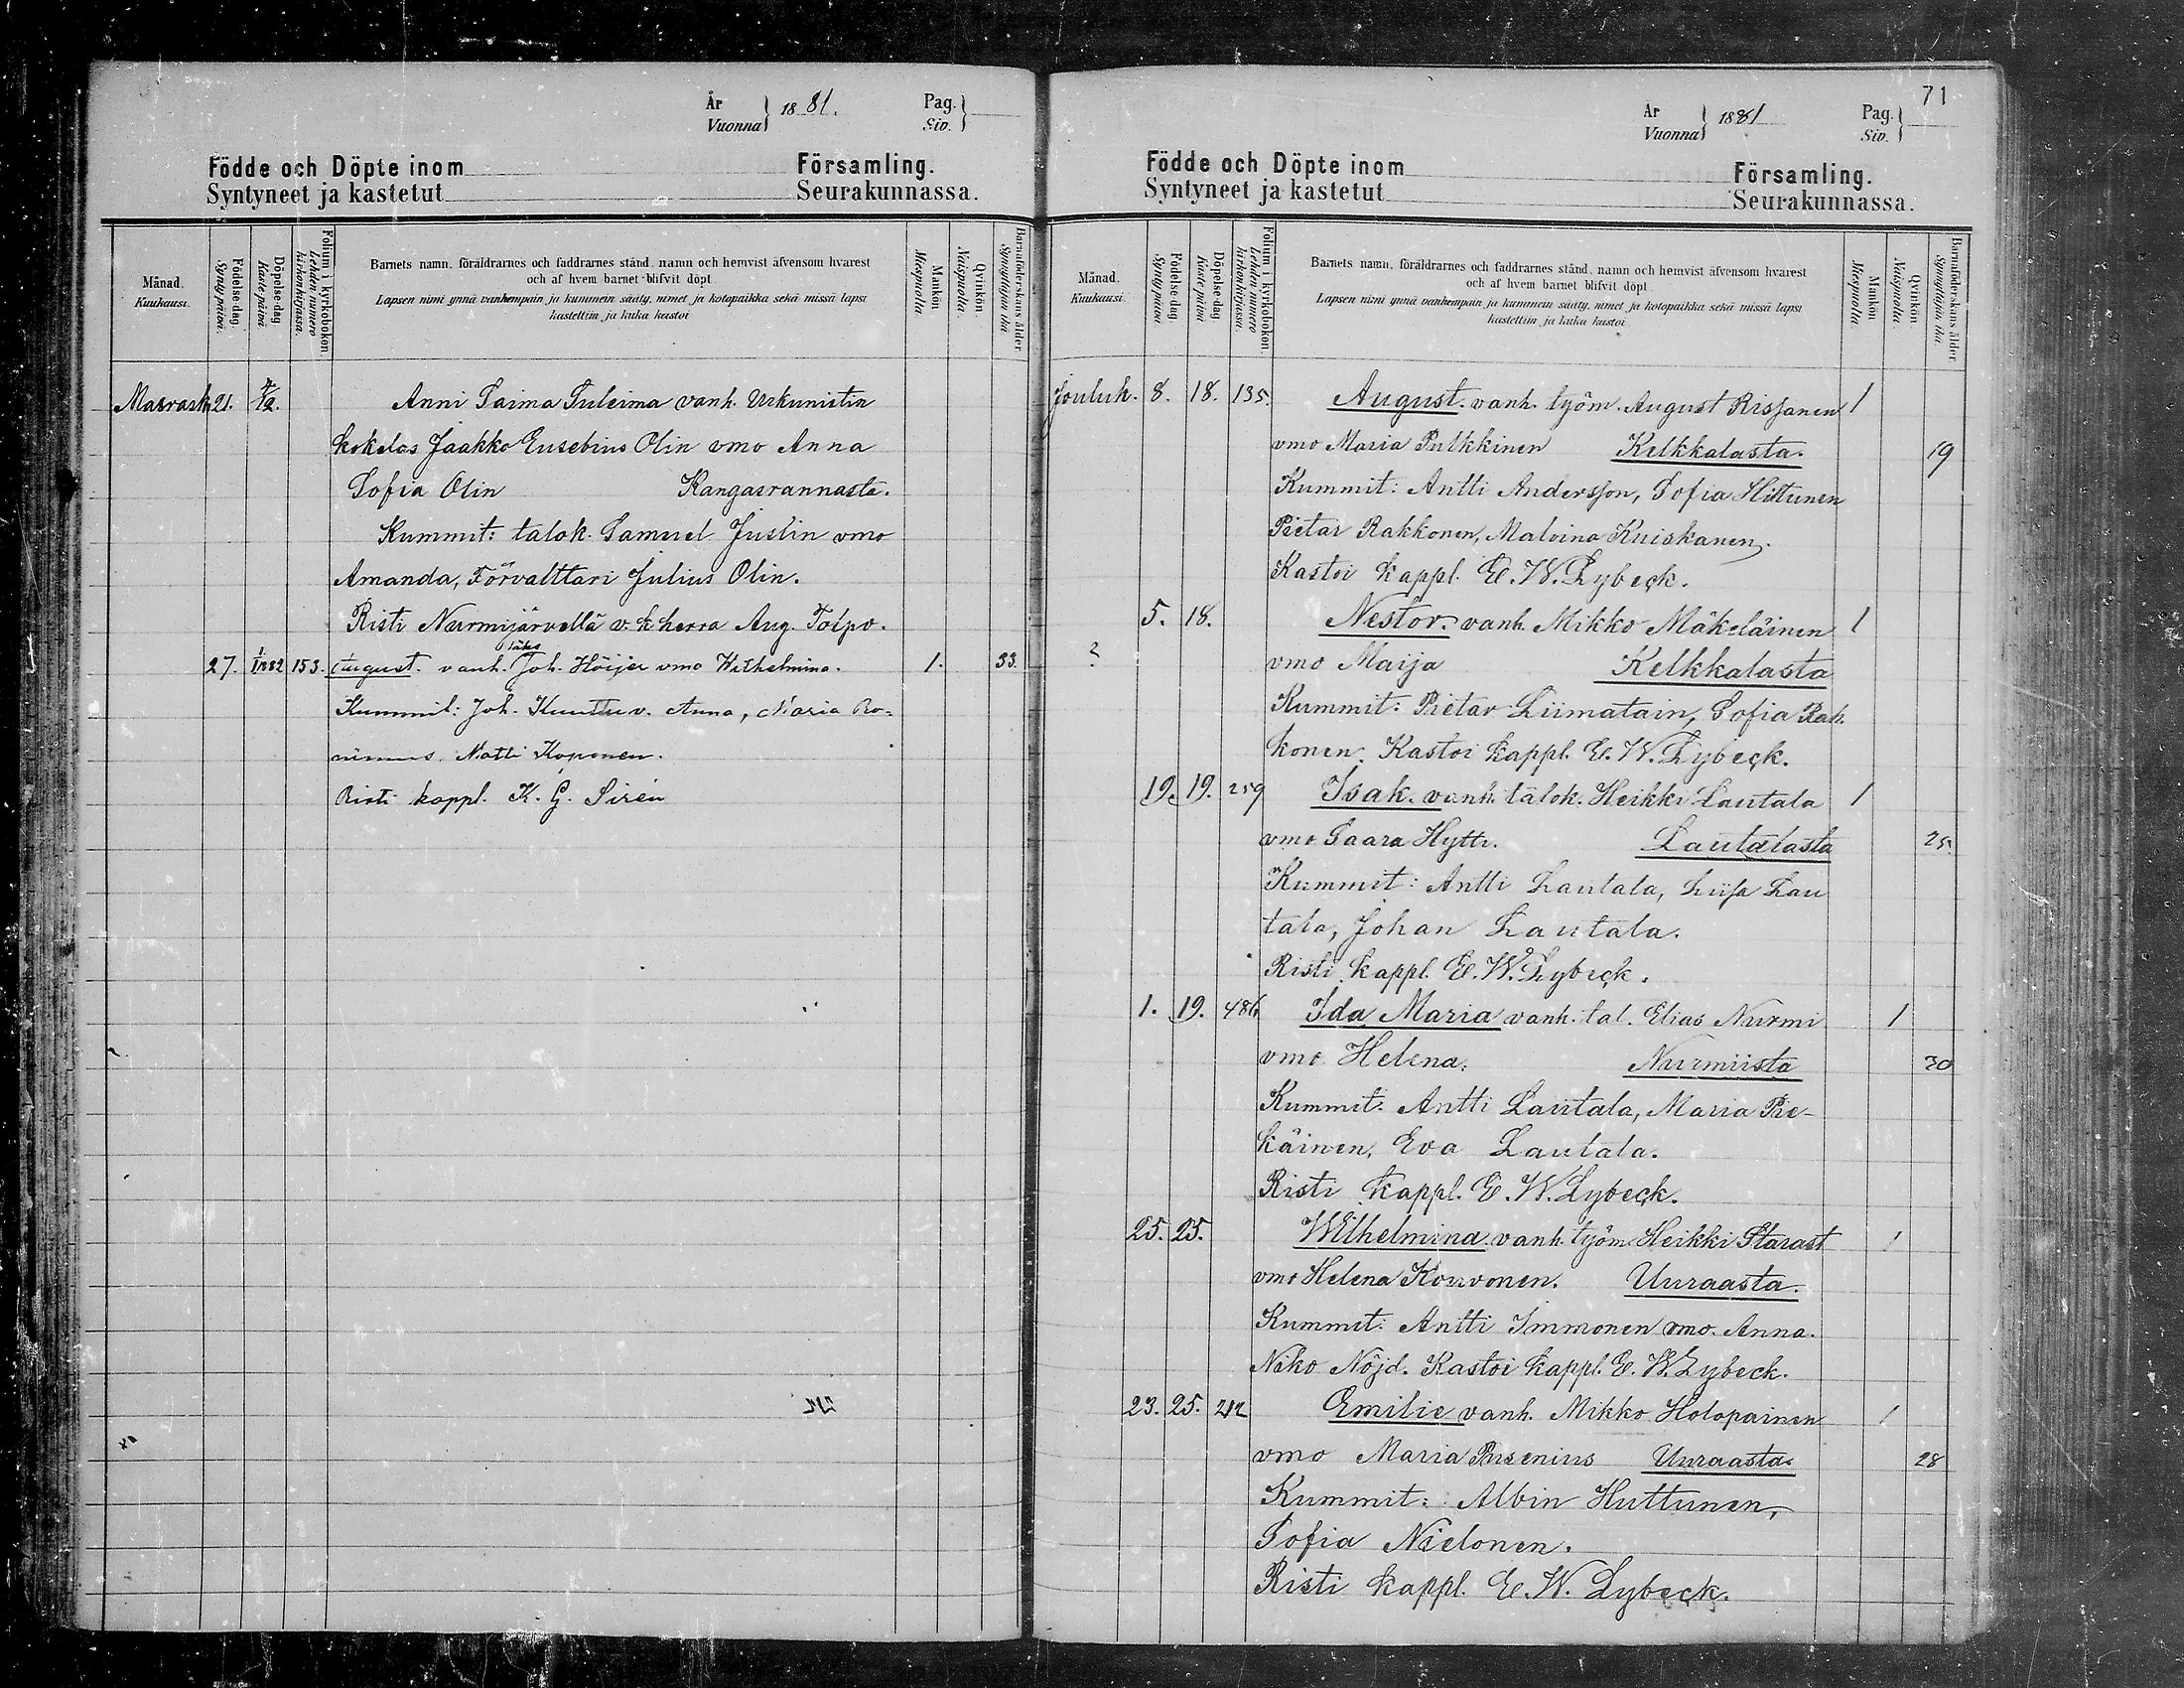 År
Vuonna } 1881. Pag.
Siv. }
Födde och Döpte inom Församling.
Syntyneet ja kastetut Seurakunnassa.
Månad.
Kuukausi.
Födelse-dag.
Syntypäivä.
Döpelse-dag
Kastepäivä.
Folium i kyrkoboken
Lehden numero kirkonkirjassa.
Barnets namn, föräldrarnes och faddrarnes stånd, namn och hemvist äfvensom hvarest
och af hvem barnet blifvit döpt.
Lapsen nimi ynnä vanhempain ja kummein sääty, nimet ja kotopaikka sekä missä lapsi
kastettiin ja kuka kastoi
Mankön
Miespuolia
Qvinkön.
Naispuolia.
Barnaföderskans ålder
Synnyttäjän ikä
Marrask. 21. 4/12. Anni Saima Suleima vanh. Urkunistin
kokelas Jaakko Eusebius Olin vmo Anna
Sofia Olin Kangasrannasta.
Kummit: talok. Samuel Juslin vmo
Amanda, Förvalttari Julius Olin.
Risti Nurmijärvellä v. k herra Aug. Tolpo.
27. 1/1 1882 153. August. vanh. Joh. Höijer vmo Wilhelmina. 1. 33.
Kummit: Joh. Kunttu v. Anna, Maria Ro-
nimus. Matti Koponen.
Risti kappl. K. G. Sirén
71
År
Vuonna } 1881 Pag.
Siv. }
Födde och Döpte inom Församling.
Syntyneet ja kastetut Seurakunnassa.
Månad.
Kuukausi.
Födelse-dag.
Syntypäivä.
Döpelse-dag
Kastepäivä
Folium i kyrkoboken
Lehden numero kirkonkirjassa.
Barnets namn, föräldrarnes och faddrarnes stånd, namn och hemvist äfvensom hvarest
och af hvem barnet blifvit döpt
Lapsen nimi ynnä vanhempain ja kummein sääty, nimet ja kotopaikka sekä missä lapsi
kastettiin ja kuka kastoi
Mankön
Miespuolia
Qvinkön.
Naispuolia.
Barnaföderskans ålder
Synnyttäjän ikä
Jouluk. 8. 18. 135. August. vanh. työm. August Rissanen 1
vmo Maria Pulkkinen Kelkkalasta. 19
Kummit: Antti Andersson, Sofia Hittunen
Pietar Rakkonen, Malvina Kuiskanen.
Kastoi kappl. E. W. Lybeck.
5. 18. Nestor. vanh. Mikko Mäkeläinen 1
? vmo Maija Kelkkalasta
Kummit: Pietar Liimatain, Sofia Rak
konen. Kastoi kappl. E. W. Lybeck.
19. 19. 259 Isak. vanh. talok. Heikki Lautala 1
vmo Saara Hytti. Lautalasta 25.
Kummit: Antti Lautala, Liisa Lau
tala, Johan Lautala.
Risti kappl. E. W. Lybeck.
1. 19. 486 Ida Maria vanh. tal. Elias Nurmi 1
vmo Helena. Nurmiista 30
Kummit: Antti Lautala, Maria Pie-
käinen, Eva Lautala.
Risti kappl. E. W. Lybeck.
25. 25. Wilhelmina vanh. työm Heikki Starast 1
vmo Helena Kouvonen. Uuraasta.
Kummit: Antti Immonen vmo. Anna.
Niko Nöjd. Kastoi kappl. E. W. Lybeck.
23. 25. 212 Emilie vanh. Mikko Holopainen 1
vmo Maria Uuraasta. 28
Kummit: Albin Huttunen,
Sofia Nielonen.
Risti kappl. E. W. Lybeck.